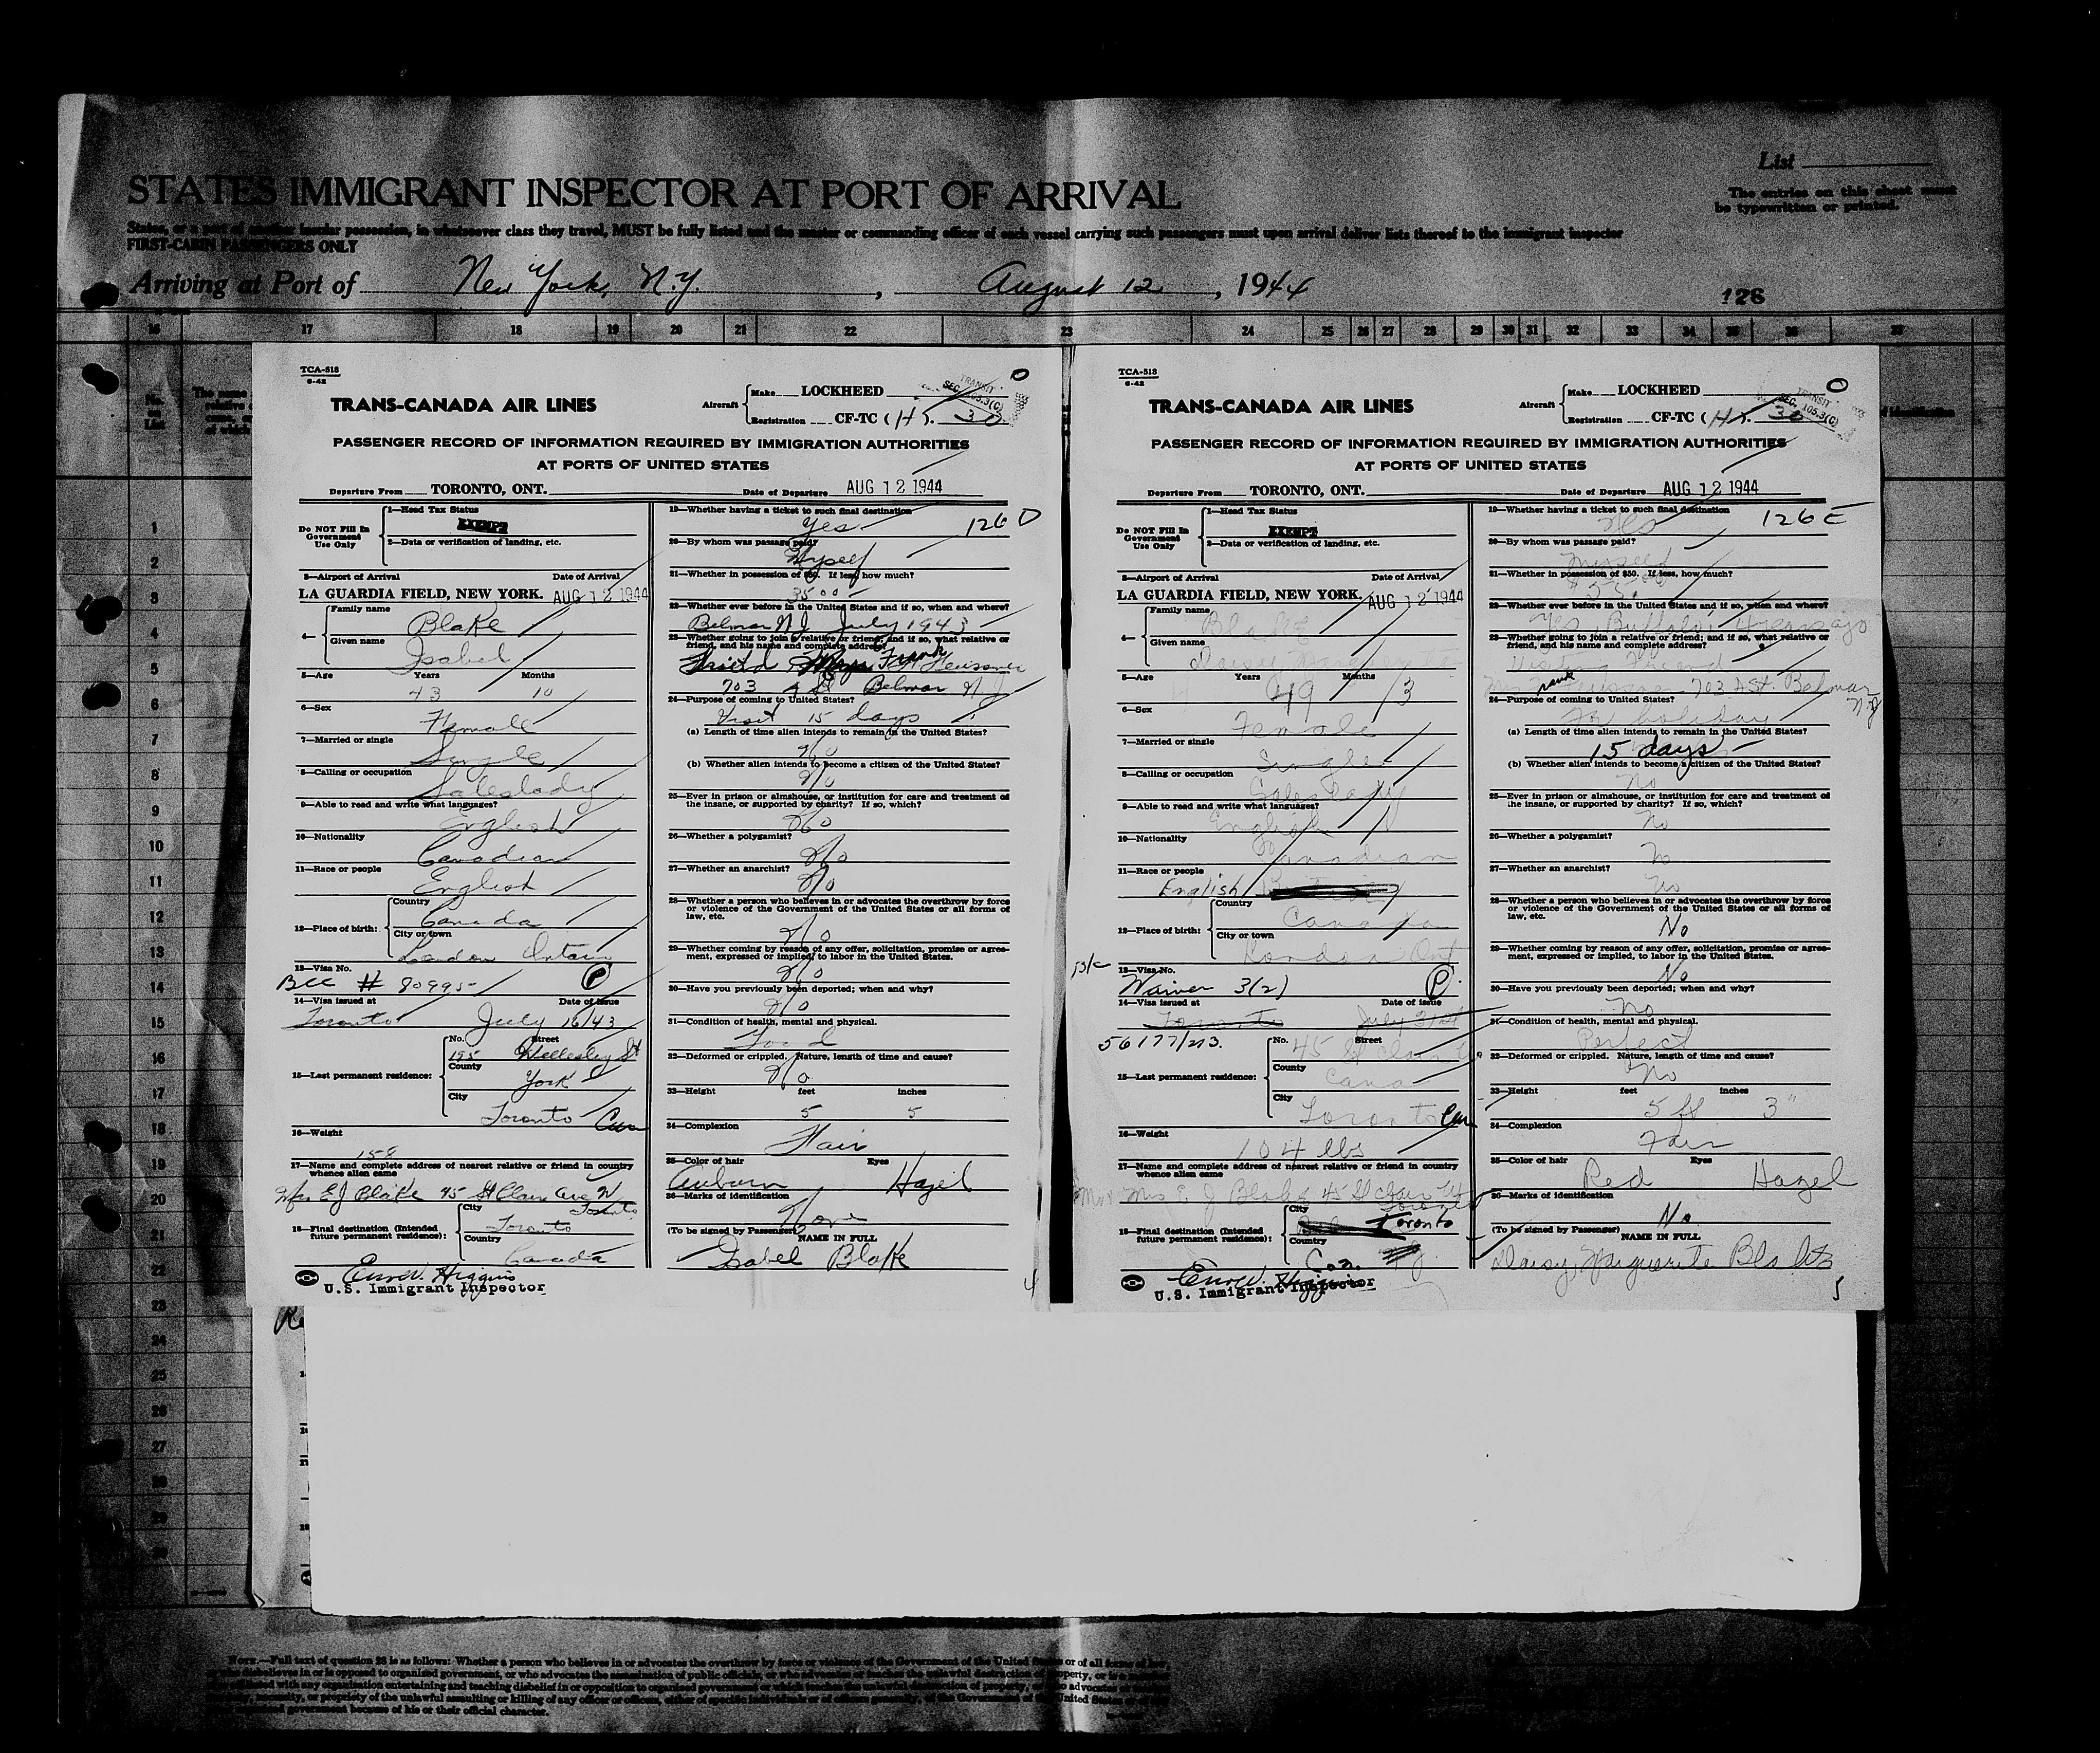 List
The entries on this sheet must
be typewritten or printed.
STATES IMMIGRANT INSPECTOR AT PORT OF ARRIVAL
States, or a port of another insular possession, in whatsoever class they travel, MUST be fully listed and the master or commanding officer of each vessel carrying such passengers must upon arrival deliver lists thereof to the immigrant inspector
FIRST-CABIN PASSENGERS ONLY
Arriving at Port of New York, N.Y., August 12, 1944
126
16 17 18 19 20 21 22 23 24 25 26 27 28 29 30 31 32 33 34 35 36
No. on List
1
2
3
4
5
6
7
8
9
10
11
12
13
14
15
16
17
18
19
20
21
22
23
24
25
26
27
28
29
30
TCA-518
6-42
TRANS-CANADA AIR LINES
Aircraft Make LOCKHEED
Registration CF-TC (H). 30
TRANSIT
SEC. 105.3(C)
PASSENGER RECORD OF INFORMATION REQUIRED BY IMMIGRATION AUTHORITIES
AT PORTS OF UNITED STATES
Departure From TORONTO, ONT. Date of Departure AUG 12 1944
Do NOT Fill In Government Use Only
1—Head Tax Status
EXEMPT
2—Data or verification of landing, etc.
3—Airport of Arrival Date of Arrival
LA GUARDIA FIELD, NEW YORK. AUG 12 1944
4— Family name Blake
Given name Isabel
5—Age Years Months
43 10
6—Sex Female
7—Married or single Single
8—Calling or occupation Saleslady
9—Able to read and write what languages? English
10—Nationality Canadian
11—Race or people English
12—Place of birth: Country Canada
City or town London Ontario
13—Visa No.
BCC # 80995
14—Visa issued at Date of issue
Toronto July 16/43
15—Last permanent residence: No. Street
195 Wellesley St
County York
City Toronto Can
16—Weight 158
17—Name and complete address of nearest relative or friend in country
whence alien came
Mrs E J Blake 45 St Clair Ave W Toronto
18—Final destination (Intended future permanent residence): City Toronto
Country Canada
U.S. Immigrant Inspector
19—Whether having a ticket to such final destination
Yes 126 D
20—By whom was passage paid?
Myself
21—Whether in possession of $50. If less, how much?
35.00
22—Whether ever before in the United States and if so, when and where?
Belmar N.J. July 1943
23—Whether going to join a relative or friend; and if so, what relative or
friend, and his name and complete address?
Friend Frank
703 A St Belmar N J
24—Purpose of coming to United States?
Visit 15 days
(a) Length of time alien intends to remain in the United States?
No
(b) Whether alien intends to become a citizen of the United States?
No
25—Ever in prison or almshouse, or institution for care and treatment of
the insane, or supported by charity? If so, which?
No
26—Whether a polygamist?
No
27—Whether an anarchist?
No
28—Whether a person who believes in or advocates the overthrow by force
or violence of the Government of the United States or all forms of
law, etc.
No
29—Whether coming by reason of any offer, solicitation, promise or agree-
ment, expressed or implied, to labor in the United States.
No
30—Have you previously been deported; when and why?
No
31—Condition of health, mental and physical.
Good
32—Deformed or crippled. Nature, length of time and cause?
No
33—Height feet inches
5 5
34—Complexion
Fair
35—Color of hair Eyes
Auburn Hazel
36—Marks of identification
None
(To be signed by Passenger) NAME IN FULL
Isabel Blake
4
TCA-518
6-42
TRANS-CANADA AIR LINES
Aircraft Make LOCKHEED
Registration CF-TC (H). 30
TRANSIT
SEC. 105.3(C)
PASSENGER RECORD OF INFORMATION REQUIRED BY IMMIGRATION AUTHORITIES
AT PORTS OF UNITED STATES
Departure From TORONTO, ONT. Date of Departure AUG 12 1944
Do NOT Fill In Government Use Only
1—Head Tax Status
EXEMPT
2—Data or verification of landing, etc.
3—Airport of Arrival Date of Arrival
LA GUARDIA FIELD, NEW YORK. AUG 12 1944
4— Family name Blake
Given name Daisy Marguerite
5—Age Years Months
49 3
6—Sex Female
7—Married or single Single
8—Calling or occupation Saleslady
9—Able to read and write what languages? English
10—Nationality Canadian
11—Race or people English
12—Place of birth: Country Canada
City or town London Ont
13—Visa No.
Waiver 3(2)
14—Visa issued at Date of issue
Toronto July 31st
56177/273.
15—Last permanent residence: No. Street
45 St Clair
County Cana
City Toronto Can
16—Weight 104 lbs
17—Name and complete address of nearest relative or friend in country
whence alien came
Mrs E J Blake 45 St Clair W Toronto
18—Final destination (Intended future permanent residence): City Toronto
Country Can.
U.S. Immigrant Inspector
19—Whether having a ticket to such final destination
Yes 126 E
20—By whom was passage paid?
Myself
21—Whether in possession of $50. If less, how much?
22—Whether ever before in the United States and if so, when and where?
Yes, Buffalo, years ago
23—Whether going to join a relative or friend; and if so, what relative or
friend, and his name and complete address?
Visiting Friend
703 A St. Belmar N.J
24—Purpose of coming to United States?
holiday
(a) Length of time alien intends to remain in the United States?
15 days
(b) Whether alien intends to become a citizen of the United States?
No
25—Ever in prison or almshouse, or institution for care and treatment of
the insane, or supported by charity? If so, which?
No
26—Whether a polygamist?
No
27—Whether an anarchist?
No
28—Whether a person who believes in or advocates the overthrow by force
or violence of the Government of the United States or all forms of
law, etc.
No
29—Whether coming by reason of any offer, solicitation, promise or agree-
ment, expressed or implied, to labor in the United States.
No
30—Have you previously been deported; when and why?
No
31—Condition of health, mental and physical.
Perfect
32—Deformed or crippled. Nature, length of time and cause?
No
33—Height feet inches
5 ft 3"
34—Complexion
Fair
35—Color of hair Eyes
Red Hazel
36—Marks of identification
No
(To be signed by Passenger) NAME IN FULL
Daisy Marguerite Blake
5
NOTE.—Full text of question 28 is as follows: Whether a person who believes in or advocates the overthrow by force or violence of the Government of the United States or of all forms of law,